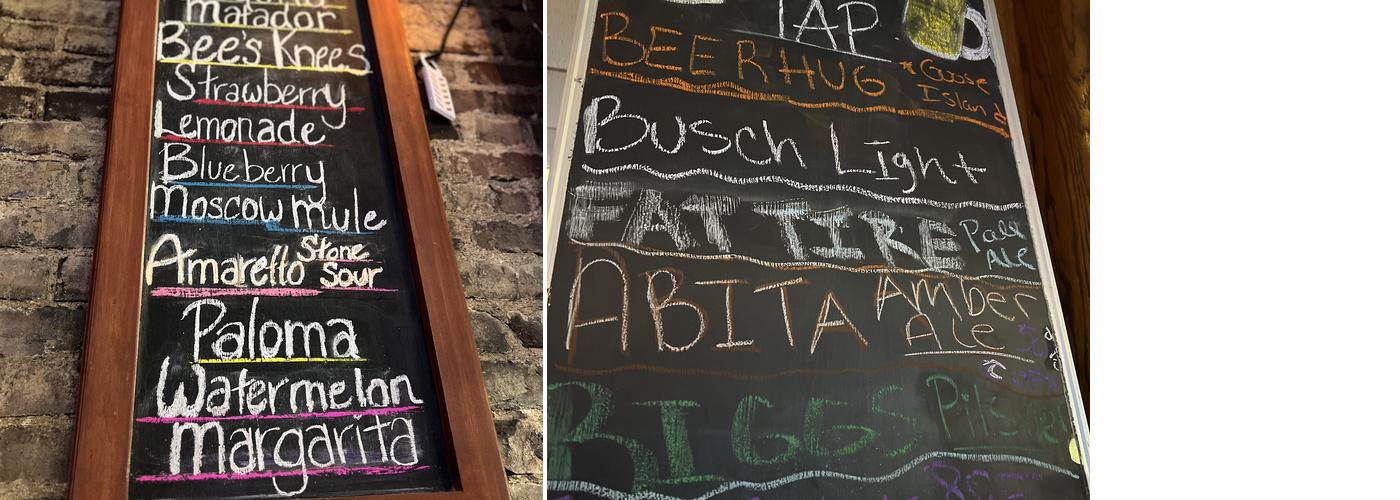 matador
Bee's Knees
Strawberry
Lemonade
Blueberry
Moscow mule
Amaretto Stone Sour
Paloma
Watermelon
margarita
TAP
BEER HUG * Goose Island
Busch Light
FAT TIRE Pale Ale
ABITA Amber Ale
BIGGS Pilsner